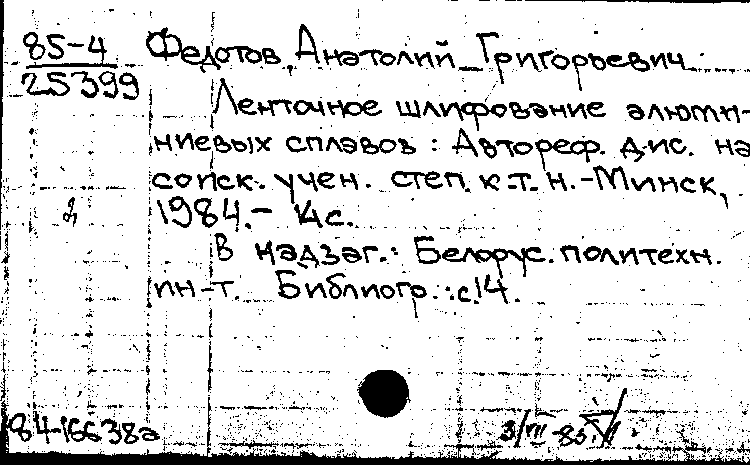 85-4 Федотов, Анатолий Григорьевич.
25399
Ленточное шлифование алюми-
ниевых сплавов : Автореф. дис. на
соиск. учен. степ. к.т.н. - Минск,
1984. - 14 с.
В надзаг.: Белорус. политехн.
ин-т. Библиогр.: с. 14.
84-16638а